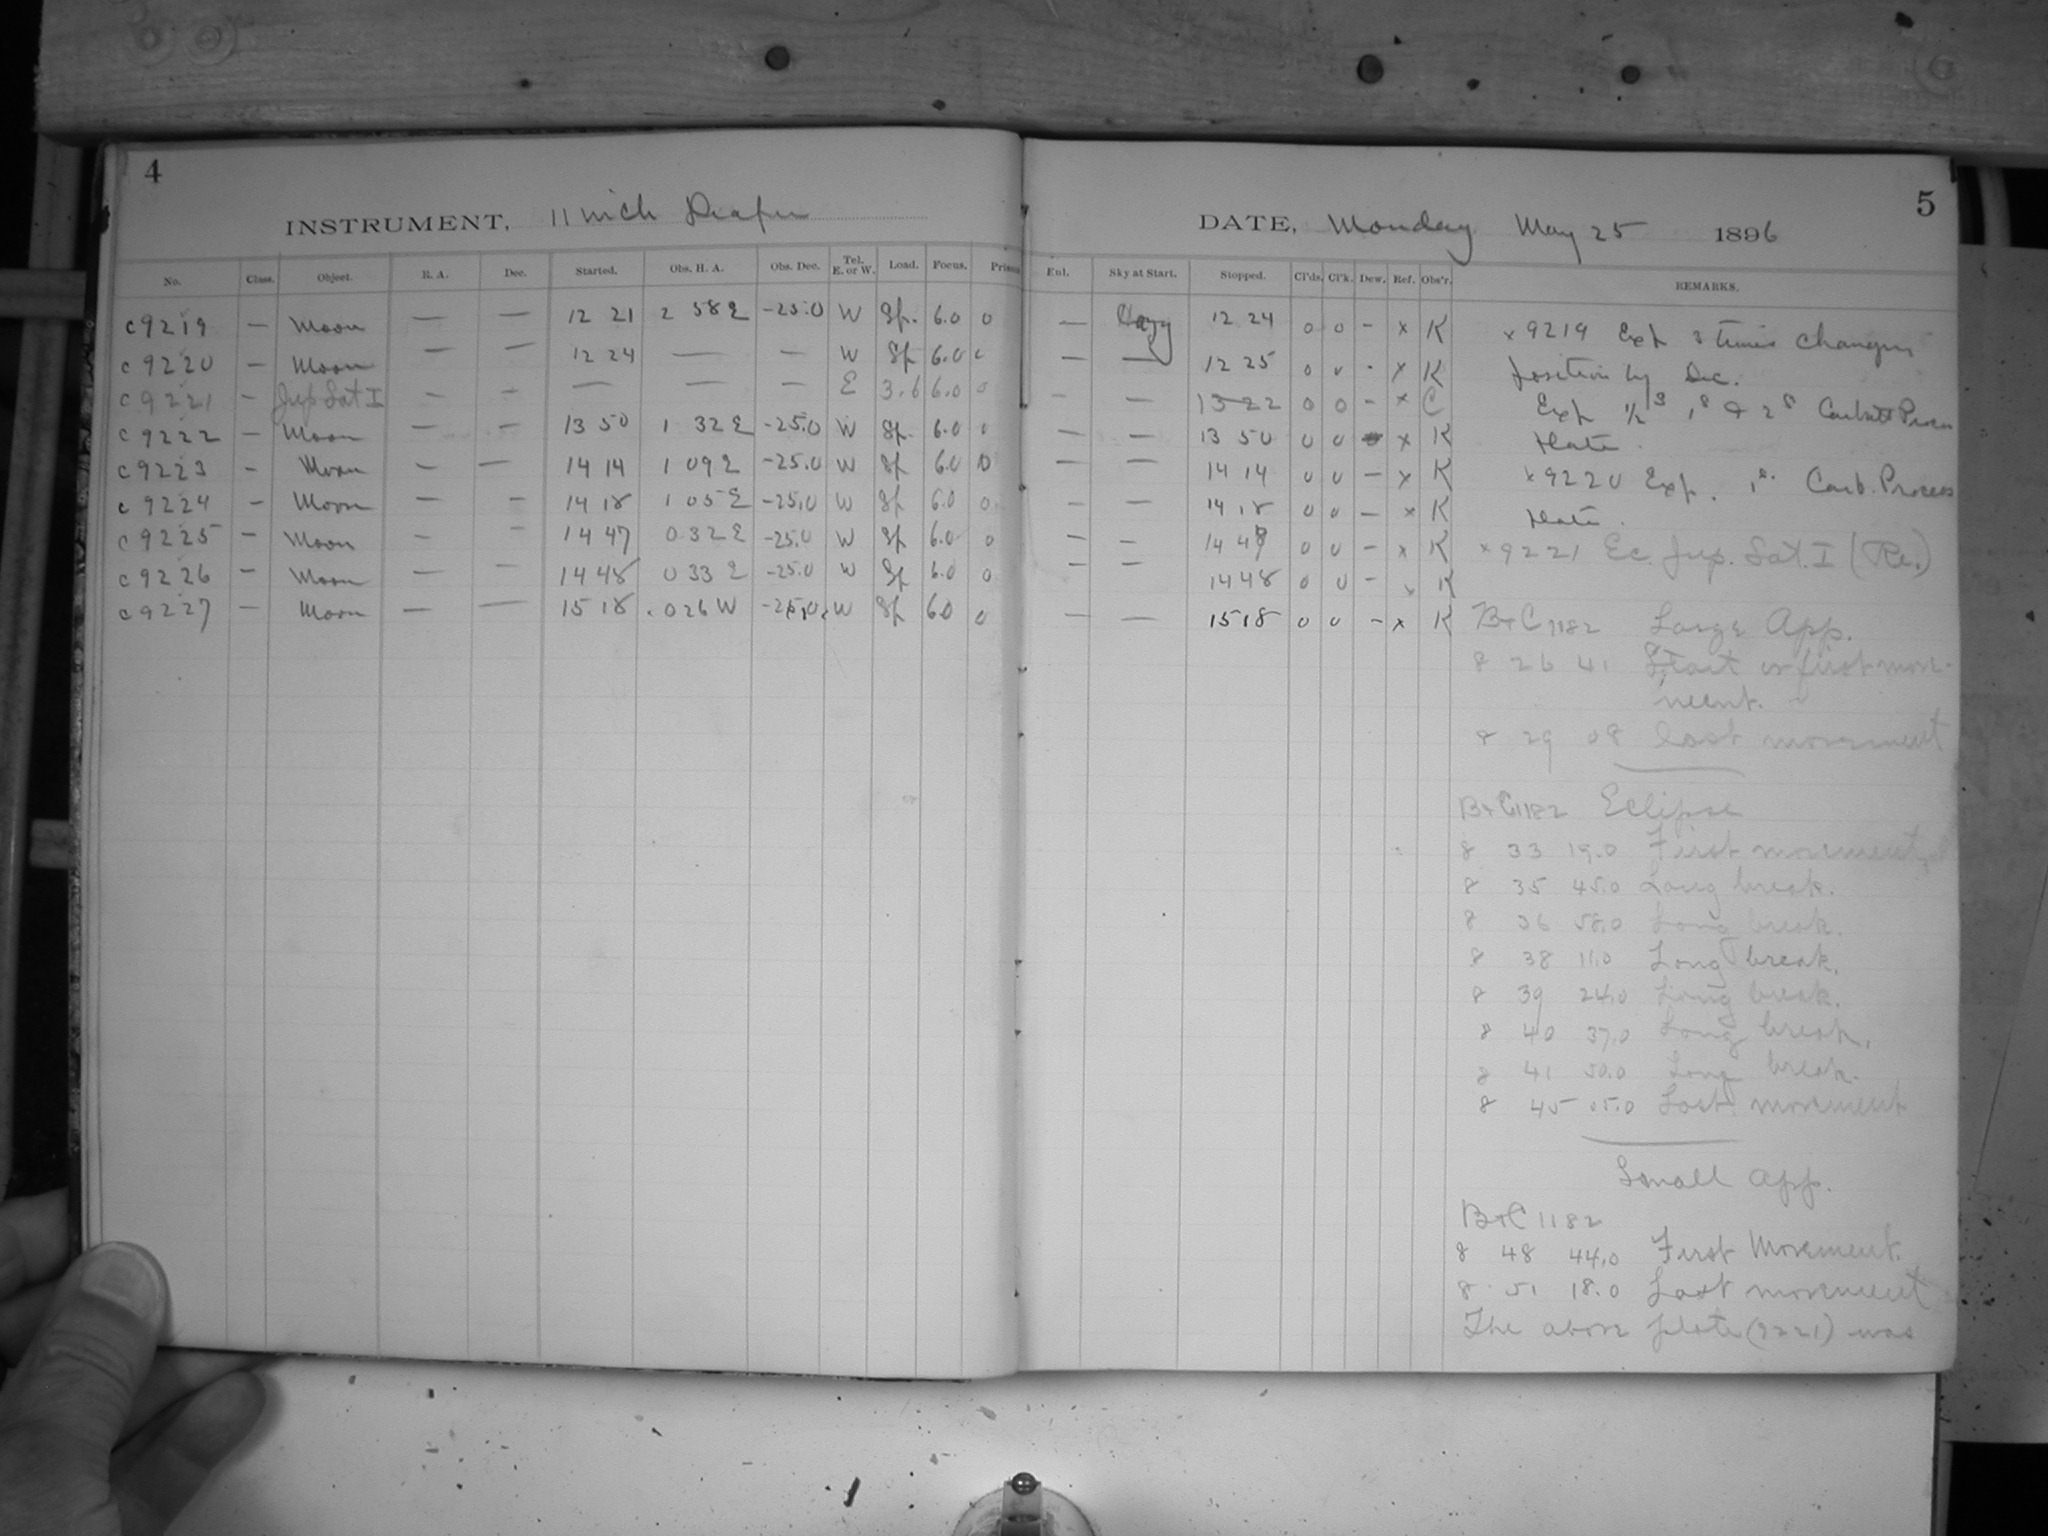 4
INSTRUMENT, 11 inch Draper
No. Class. Object. R. A. Dec. Started. Obs. H. A. Obs. Dec. Tel. E. or W. Load. Focus. Prism
c 9219 — Moon — — 12 21 2 58 E -25.0 W Sp. 6.0 0
c 9220 — Moon — — 12 24 — — W Sp 6.0 0
c 9221 — Jup Sat I — — — — — E 3.6 6.0 0
c 9222 — Moon — — 13 50 1 32 E -25.0 W Sp. 6.0 0
c 9223 — Moon — — 14 14 1 09 E -25.0 W Sp 6.0 0
c 9224 — Moon — — 14 18 1 05 E -25.0 W Sp 6.0 0
c 9225 — Moon — — 14 47 0 32 E -25.0 W Sp 6.0 0
c 9226 — Moon — — 14 48 0 33 E -25.0 W Sp 6.0 0
c 9227 — Moon — — 15 18 0 26 W -25.0 W Sp 6.0 0
5
DATE, Monday May 25 1896
Enl. Sky at Start. Stopped. Cl'ds. Cl'k. Dew. Ref. Obs'r. REMARKS.
— Hazy 12 24 0 0 — x K
— — 12 25 0 0 - x K
— — 13 22 0 0 — x C
— — 13 50 0 0 x K
— — 14 14 0 0 — x K
— — 14 18 0 0 — x K
— — 14 48 0 0 — x K
— — 14 48 0 0 — x K
— — 15 18 0 0 — x K
x 9219 Exp 3 times changing
position by Dec.
Exp 1/2 s 1 s & 2 s Carbutt Process
Plate.
x 9220 Exp. 1 s. Carb. Process
Plate.
x 9221 Ec. Jup. Sat. I (Re.)
B+C 1182 Large App.
8 26 41 Start or first move-
ment.
8 29 08 last movement
B+C 1182 Eclipse
8 33 19.0 First movement
8 35 45.0 Long break.
8 36 58.0 Long break.
8 38 11.0 Long break.
8 39 24.0 Long break.
8 40 37.0 Long break.
8 41 50.0 Long break.
8 45 05.0 Last movement
Small App.
B+C 1182
8 48 44.0 First Movement.
8 51 18.0 Last movement
The above plate (9221) was